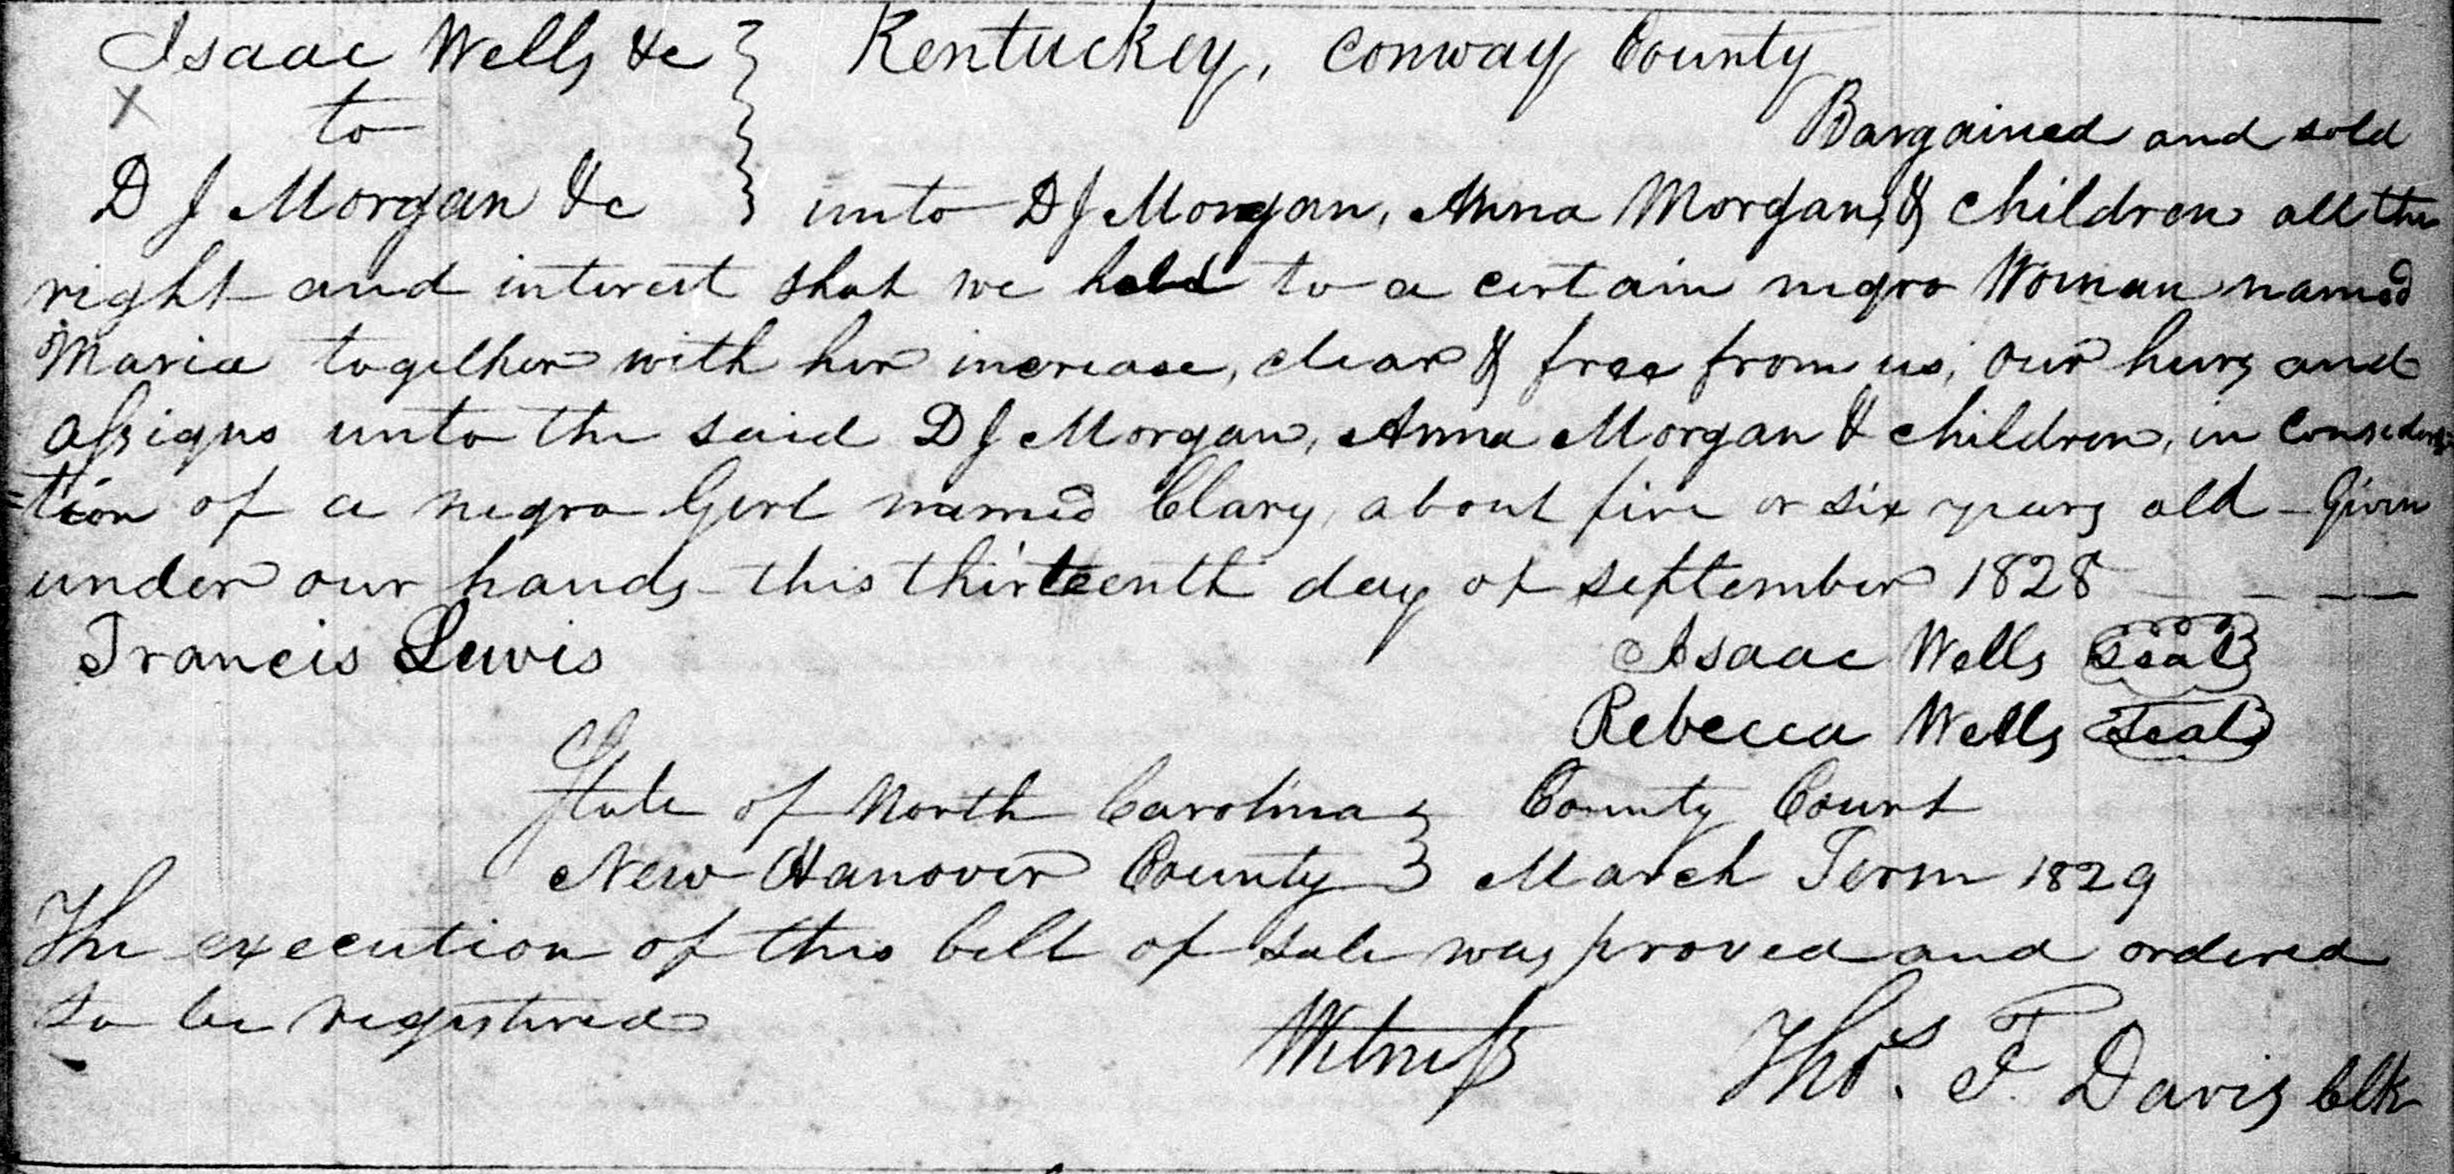 Isaac Wells &c } Kentuckey, Conway County
to
Bargained and sold
D J Morgan &c } unto D J Morgan, Anna Morgan, & children all the
right and interest that we hold to a certain negro Woman named
Maria together with her increase, clear & free from us, our heirs and
assigns unto the said D J Morgan, Anna Morgan & children, in considera
=tion of a negro Girl named Clary, about five or six years old - Given
under our hands this thirteenth day of September 1828
Francis Lewis Isaac Wells Seal
Rebecca Wells Seal
State of North Carolina } County Court
New Hanover County } March Term 1829
The execution of this bill of sale was proved and ordered
to be registered
Witness Thos. F. Davis Clk